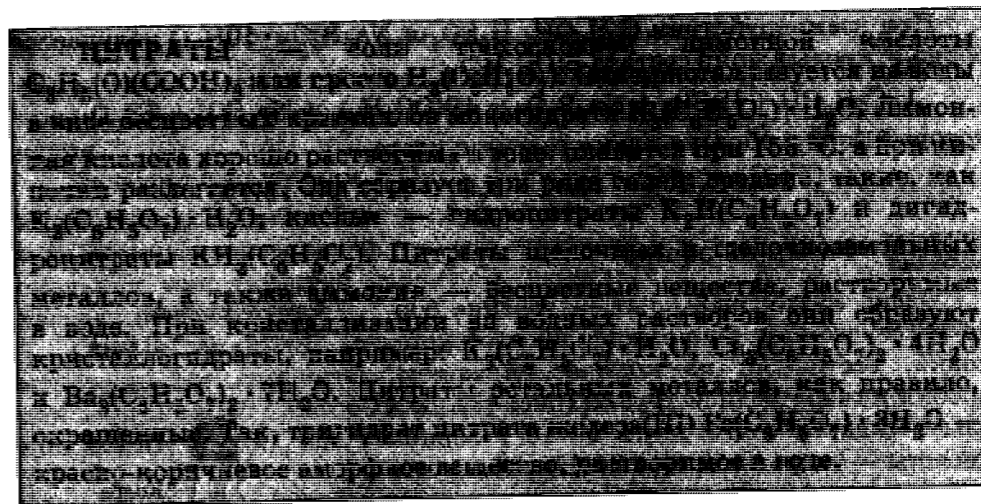 ЦИТРАТЫ — соли лимонной кислоты
C₃H₄(OH)(COOH)₃ или
в виде бесцветных кристаллов моногидрата · H₂O. Лимон-
ная кислота хорошо растворима в воде, плавится при °C, а при
разлагается. Она образует три ряда солей: такие, как
K₃(C₆H₅O₇) · H₂O, кислые — гидроцитраты K₂H(C₆H₅O₇) и дигид-
роцитраты KH₂(C₆H₅O₇). Цитраты щелочных и щелочноземельных
металлов, а также аммония — бесцветные вещества, растворимые
в воде. При кристаллизации из водных растворов они образуют
кристаллогидраты, например K₃(C₆H₅O₇) · H₂O, (C₆H₅O₇)₂ · 4H₂O
и Ba₃(C₆H₅O₇)₂ · 7H₂O. Цитраты остальных металлов, как правило,
окрашенные. Так, тригидрат цитрата железа(III) Fe(C₆H₅O₇) · 3H₂O —
красно-коричневое аморфное вещество, в воде.